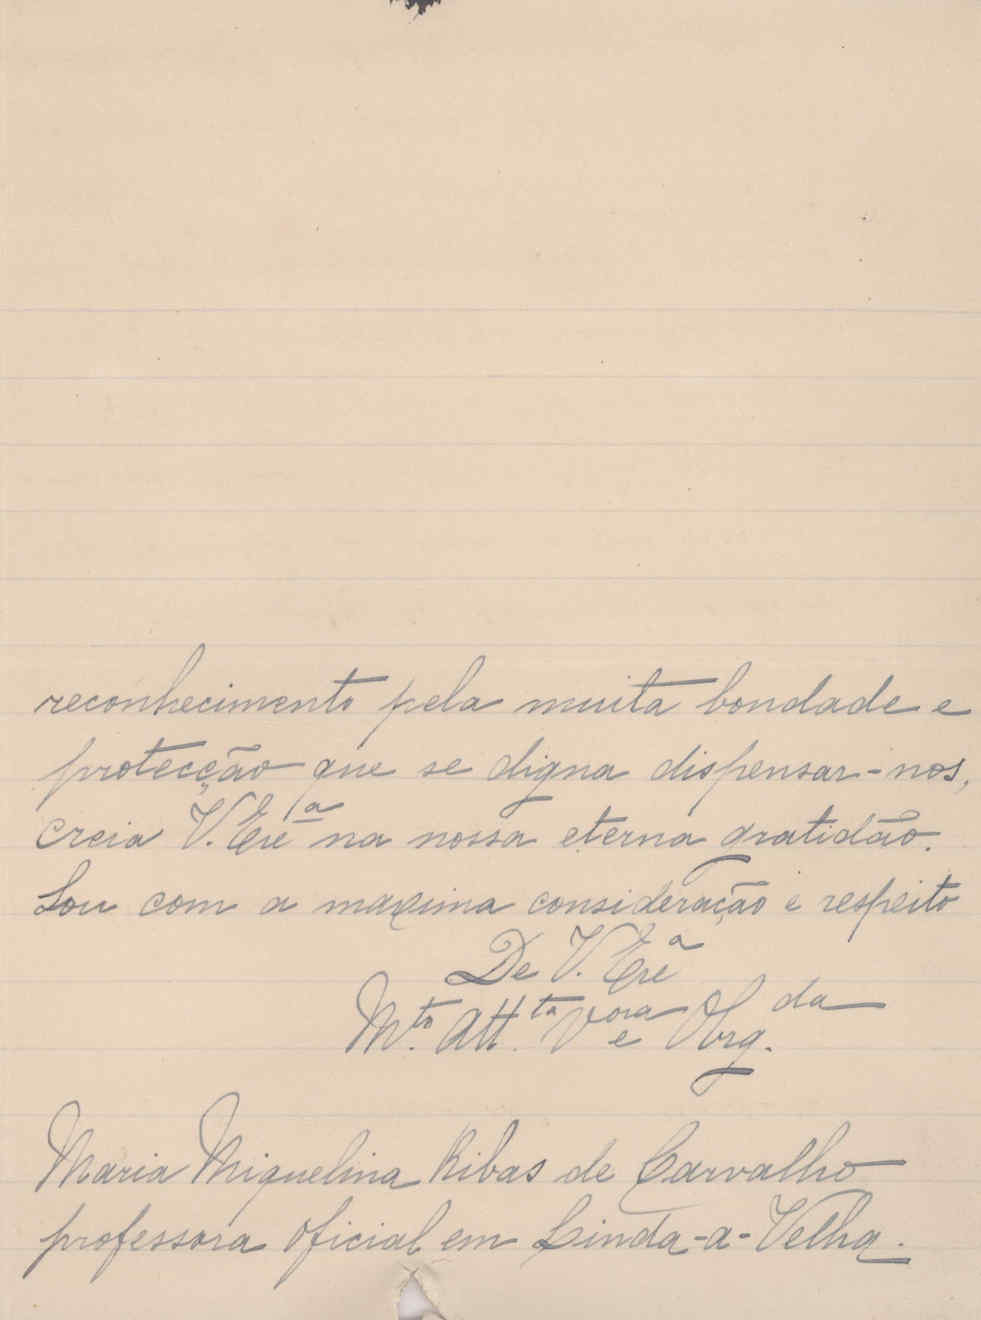 reconhecimento pela muita bondade e
protecção que se digna dispensar-nos,
creia V. Exª na nossa eterna gratidão.
Sou com a maxima consideração e respeito
De V. Exª
Mto. Attta. Vora e Obrgda.
Maria Miquelina Ribas de Carvalho
professora oficial em Linda-a-Velha.